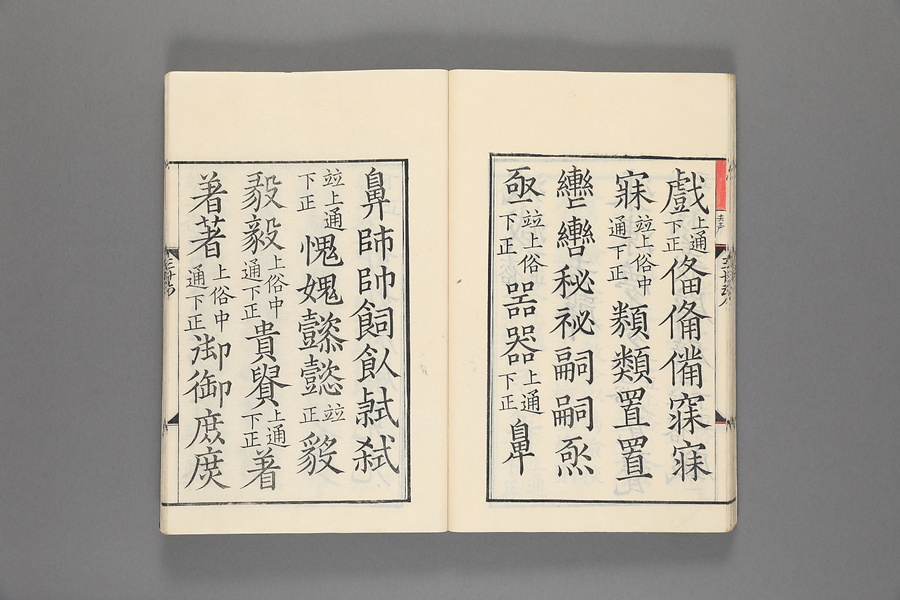 戲上通下正俻俻備寐寐
寐竝上俗中通下正類類置置
轡轡秘祕嗣嗣
亟竝上俗下正噐器上通下正鼻
鼻師帥飼飤弑
竝上通下正愧媿懿懿竝正毅
毅毅上俗中通下正貴上通下正着
著著上俗中通下正御御庶庶